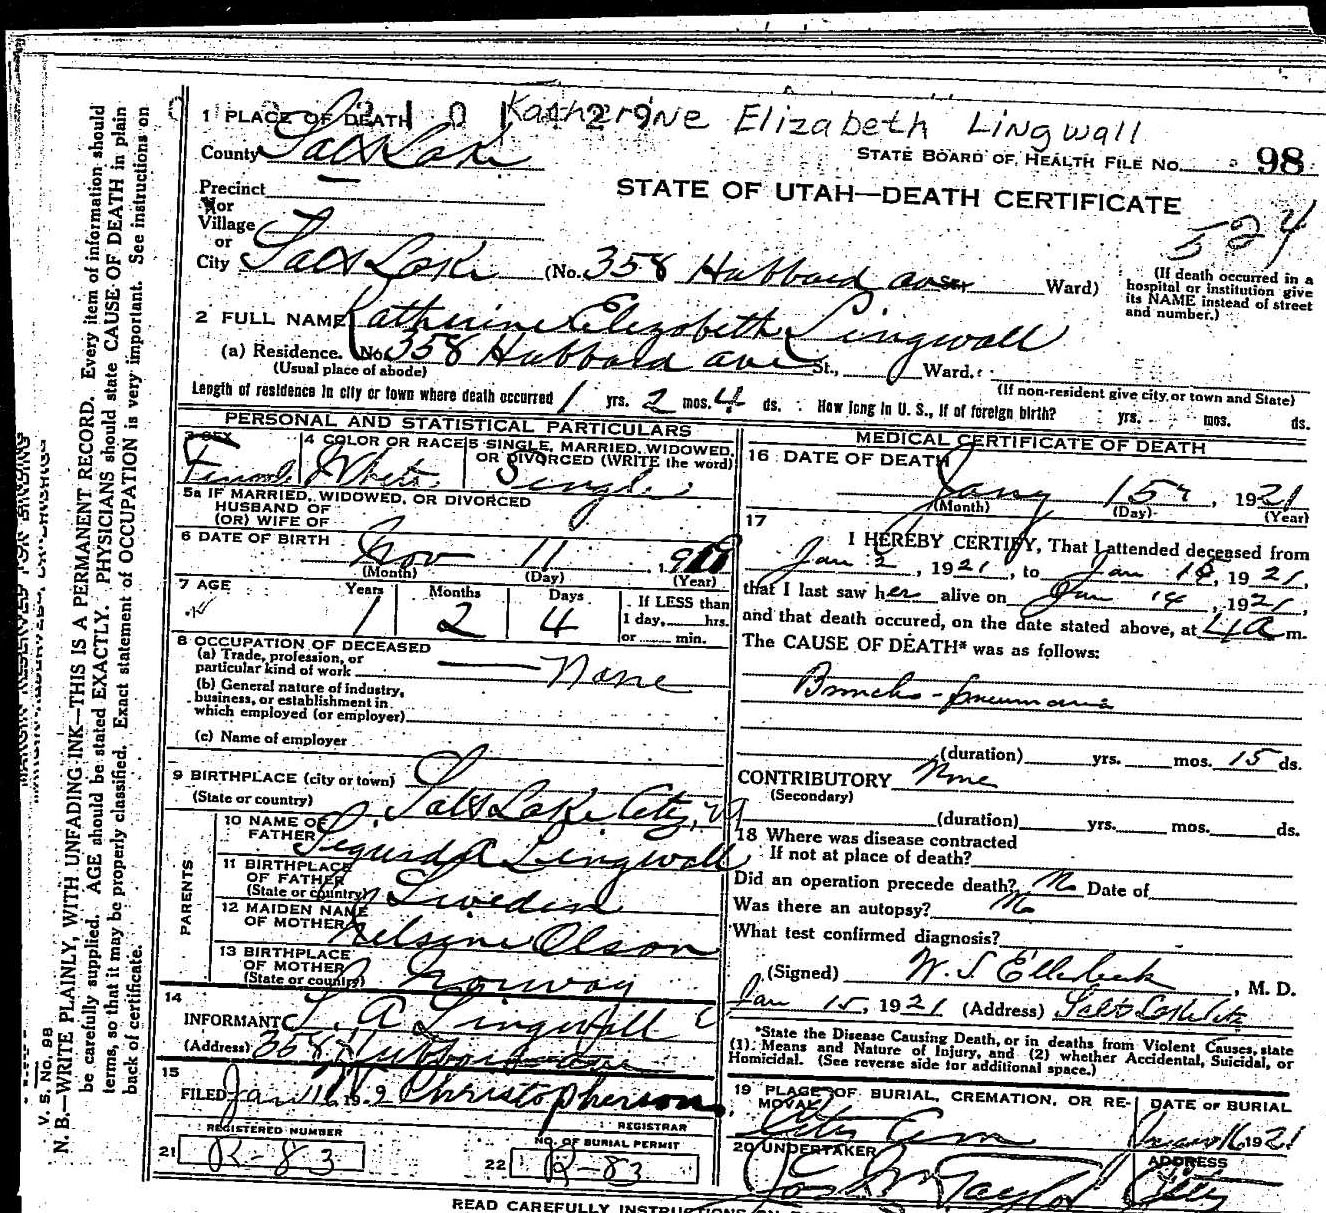 Katherine Elizabeth Lingwall
1 PLACE OF DEATH
County Salt Lake
STATE BOARD OF HEALTH FILE NO. 98
Precinct
or
Village
or
STATE OF UTAH—DEATH CERTIFICATE
524
City Salt Lake (No. 358 Hubbard ave St., Ward)
(If death occurred in a hospital or institution give its NAME instead of street and number.)
2 FULL NAME Katherine Elizabeth Lingwall
(a) Residence. No. 358 Hubbard ave St., Ward.
(Usual place of abode)
(If non-resident give city or town and State)
Length of residence in city or town where death occurred 1 yrs. 2 mos. 4 ds. How long in U. S., if of foreign birth? yrs. mos. ds.
PERSONAL AND STATISTICAL PARTICULARS
3 SEX Female
4 COLOR OR RACE White
5 SINGLE, MARRIED, WIDOWED, OR DIVORCED (WRITE the word) Single
5a IF MARRIED, WIDOWED, OR DIVORCED
HUSBAND OF
(OR) WIFE OF
6 DATE OF BIRTH Nov 11
(Month) (Day) (Year)
7 AGE Years 1 Months 2 Days 4
If LESS than
1 day, hrs.
or min.
8 OCCUPATION OF DECEASED
(a) Trade, profession, or
particular kind of work None
(b) General nature of industry,
business, or establishment in
which employed (or employer)
(c) Name of employer
9 BIRTHPLACE (city or town)
(State or country) Salt Lake City,
PARENTS
10 NAME OF FATHER Sigurd A Lingwall
11 BIRTHPLACE OF FATHER
(State or country) Sweden
12 MAIDEN NAME OF MOTHER Nelsine Olson
13 BIRTHPLACE OF MOTHER
(State or country) Norway
14
INFORMANT S. A Lingwall
(Address) 358 Hubbard ave
15
FILED Jan 19 Christopherson
REGISTRAR
REGISTERED NUMBER
21 R-83
NO. OF BURIAL PERMIT
22 R-83
MEDICAL CERTIFICATE OF DEATH
16 DATE OF DEATH
Jany 15, 1921
(Month) (Day) (Year)
17
I HEREBY CERTIFY, That I attended deceased from
Jan 2, 1921, to Jan 15, 1921,
that I last saw her alive on Jan 14, 1921,
and that death occured, on the date stated above, at 4 a m.
The CAUSE OF DEATH* was as follows:
Broncho-pneumonia
(duration) yrs. mos. 15 ds.
CONTRIBUTORY None
(Secondary)
(duration) yrs. mos. ds.
18 Where was disease contracted
If not at place of death?
Did an operation precede death? No Date of
Was there an autopsy? No
What test confirmed diagnosis?
(Signed) W. S. Ellerbeck, M. D.
Jan 15, 1921 (Address) Salt Lake City
*State the Disease Causing Death, or in deaths from Violent Causes, state
(1) Means and Nature of Injury, and (2) whether Accidental, Suicidal, or
Homicidal. (See reverse side for additional space.)
19 PLACE OF BURIAL, CREMATION, OR REMOVAL City Cem
DATE OF BURIAL Jan 16 1921
20 UNDERTAKER Jos Wm Taylor
ADDRESS City
READ CAREFULLY INSTRUCTIONS ON
V. S. No. 98
N. B.—WRITE PLAINLY, WITH UNFADING INK—THIS IS A PERMANENT RECORD. Every item of information should
be carefully supplied. AGE should be stated EXACTLY. PHYSICIANS should state CAUSE OF DEATH in plain
terms, so that it may be properly classified. Exact statement of OCCUPATION is very important. See instructions on
back of certificate.
MARGIN RESERVED FOR BINDING